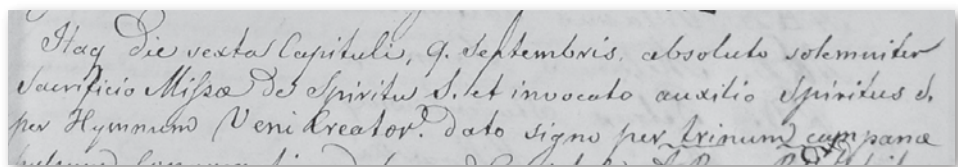 Itaq die sexta Capituli, 9. Septembris. absoluto solemniter
Sacrificio Missæ de Spiritu S. et invocato auxilio Spiritus S.
per Hymnum Veni Creator. dato signo per trinum campanæ